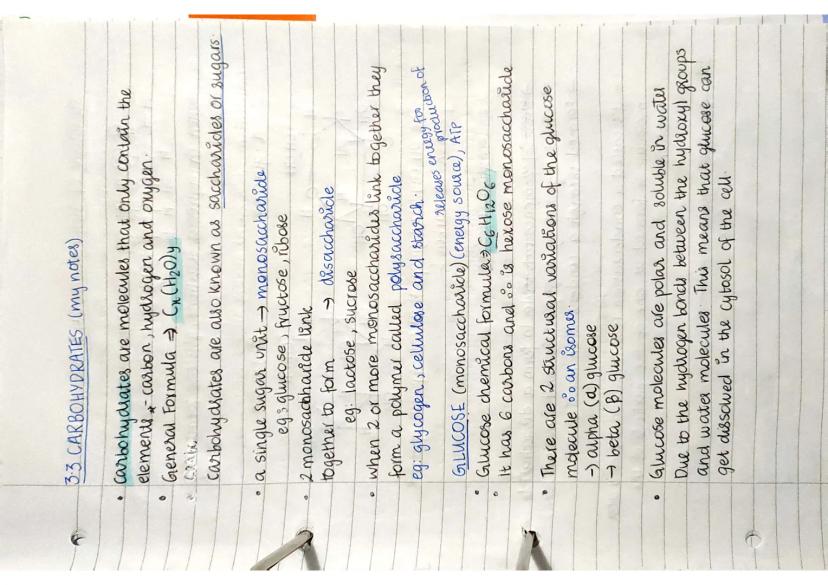 3.3 CARBOHYDRATES (my notes)
• Carbohydrates are molecules that only contain the
elements - carbon, hydrogen and oxygen.
• General Formula ⇒ Cx(H2O)y
Carbohydrates are also known as saccharides or sugars.
• a single sugar unit → monosaccharide
eg: glucose, fructose, ribose
• 2 monosaccharide link
together to form → disaccharide
eg: lactose, sucrose
• when 2 or more monosaccharides link together they
form a polymer called polysaccharide
eg: glycogen, cellulose and starch.
releases energy for
production of
GLUCOSE (monosaccharide) (energy source), ATP
• Glucose chemical formula ⇒ C6H12O6
• It has 6 carbons and ∴ is hexose monosaccharide
• There are 2 structural variations of the glucose
molecule ∴ an isomer.
→ alpha (α) glucose
→ beta (β) glucose
• Glucose molecules are polar and soluble in water
Due to the hydrogen bonds between the hydroxyl groups
and water molecules. This means that glucose can
get dissolved in the cytosol of the cell.